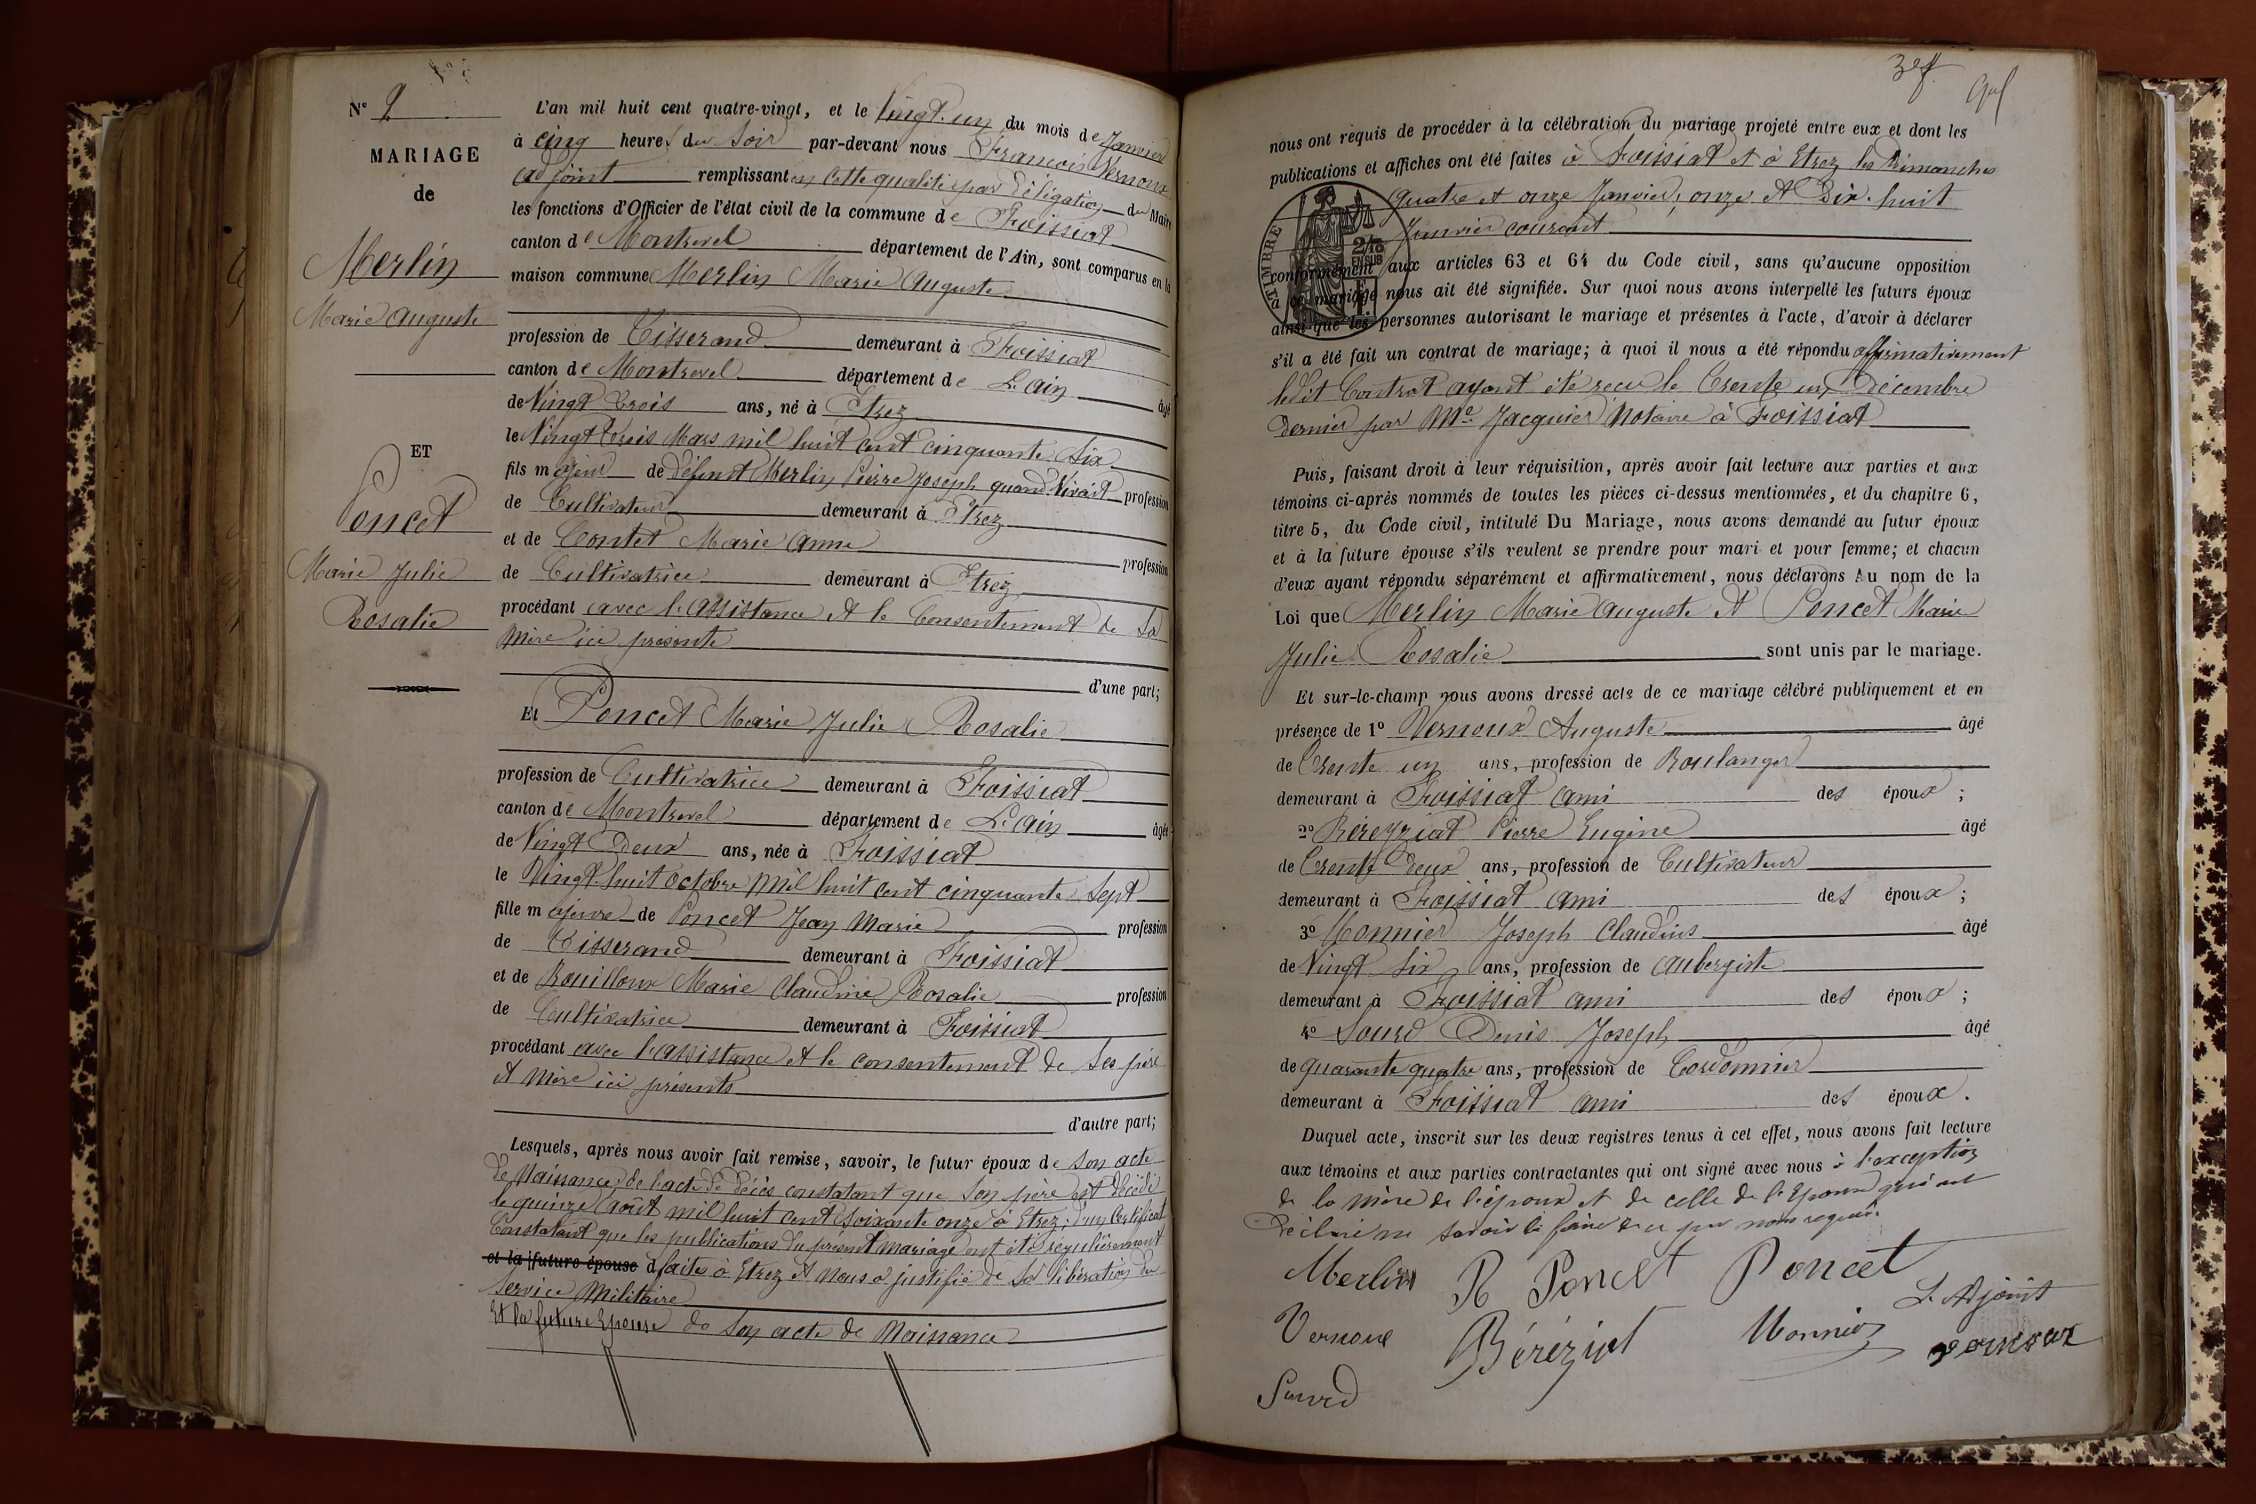 N° 2
MARIAGE
de
Merlin
Marie Auguste
ET
Poncet
Marie Julie
Rosalie
L'an mil huit cent quatre-vingt, et le Vingt-un du mois de Janvier
à cinq heures du Soir par-devant nous François Vernoux
adjoint remplissant en cette qualité par Délégation du Maire
les fonctions d'Officier de l'état civil de la commune de Foissiat
canton de Montrevel département de l'Ain, sont comparus en la
maison commune Merlin Marie Auguste
profession de Tisserand demeurant à Foissiat
canton de Montrevel département de L'ain âgé
de Vingt trois ans, né à Etrez
le Vingt trois Mars mil huit cent cinquante Six
fils majeur de défunt Merlin Pierre Joseph quand Vivait profession
de Cultivateur demeurant à Etrez
et de Contet Marie Anne profession
de Cultivatrice demeurant à Etrez
procédant avec l'assistance et le Consentement de Sa
Mère ici présente
d'une part;
Et Poncet Marie Julie Rosalie
profession de Cultivatrice demeurant à Foissiat
canton de Montrevel département de L'ain âgée
de Vingt Deux ans, née à Foissiat
le Vingt-huit octobre Mil huit cent cinquante Sept
fille majeure de Poncet Jean Marie profession
de Tisserand demeurant à Foissiat
et de Rouilloux Marie Claudine Rosalie profession
de Cultivatrice demeurant à Foissiat
procédant avec l'assistance et le consentement de Ses père
et Mère ici présents
d'autre part;
Lesquels, après nous avoir fait remise, savoir, le futur époux de son acte
de Naissance, de l'acte de Décès constatant que Son père est Décédé
le quinze Août mil huit cent Soixante onze à Etrez, d'un Certificat
Constatant que les publications du présent mariage ont été régulièrement
et la future épouse d faites à Etrez et Nous a justifié de Sa libération du
Service Militaire
Et la future Epouse de Son acte de Naissance
3e f.
nous ont requis de procéder à la célébration du mariage projeté entre eux et dont les
publications et affiches ont été faites à Foissiat et à Etrez les Dimanches
quatre et onze Janvier, onze et Dix-huit
Janvier courant
TIMBRE
conformément aux articles 63 et 64 du Code civil, sans qu'aucune opposition
à ce mariage nous ait été signifiée. Sur quoi nous avons interpellé les futurs époux
ainsi que les personnes autorisant le mariage et présentes à l'acte, d'avoir à déclarer
s'il a été fait un contrat de mariage; à quoi il nous a été répondu affirmativement
ledit Contrat ayant été reçu le Trente un Décembre
Dernier par Me Jacquier Notaire à Foissiat
Puis, faisant droit à leur réquisition, après avoir fait lecture aux parties et aux
témoins ci-après nommés de toutes les pièces ci-dessus mentionnées, et du chapitre 6,
titre 5, du Code civil, intitulé Du Mariage, nous avons demandé au futur époux
et à la future épouse s'ils veulent se prendre pour mari et pour femme; et chacun
d'eux ayant répondu séparément et affirmativement, nous déclarons Au nom de la
Loi que Merlin Marie Auguste et Poncet Marie
Julie Rosalie sont unis par le mariage.
Et sur-le-champ nous avons dressé acte de ce mariage célébré publiquement et en
présence de 1° Vernoux Auguste âgé
de Trente un ans, profession de Boulanger
demeurant à Foissiat ami des époux ;
2° Béréyziat Pierre Eugène âgé
de Trente Deux ans, profession de Cultivateur
demeurant à Foissiat ami des époux ;
3° Monnier Joseph Claudius âgé
de Vingt Six ans, profession de Aubergiste
demeurant à Foissiat ami des époux ;
4° Sourd Denis Joseph âgé
de quarante quatre ans, profession de Cordonnier
demeurant à Foissiat ami des époux .
Duquel acte, inscrit sur les deux registres tenus à cet effet, nous avons fait lecture
aux témoins et aux parties contractantes qui ont signé avec nous à l'exception
de la mère de l'époux et de celle de l'Epouse qui ont
Déclaré ne savoir le faire de ce par nous requis.
Merlin R Poncet Poncet
L'Adjoint
Vernoux Béréziat Monnier Vernoux
Sourd